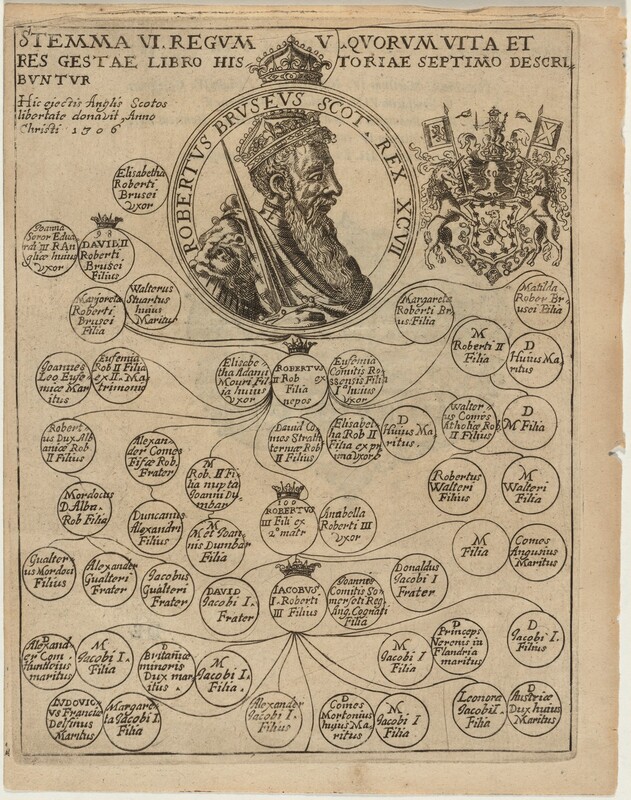 STEMMA VI. REGVM V. QVORVM VITA ET
RES GESTAE LIBRO HISTORIAE SEPTIMO DESCRI
BVNTVR
Hic ejectis Anglis Scotos
libertate donavit, Anno
Christi 1306
ROBERTVS BRVSEVS SCOT. REX XCVII
Elisabetha
Roberti
Brusei
Vxor
Joanna
Soror Edua
rdi III R An
gliæ huius
vxor
98
DAVID II
Roberti
Brusei
Filius
Marjoreta
Roberti
Brusei
Filia
Walterus
Stuartus
huius
Maritus
Margareta
Roberti Br
usei Filia
Matilda
Rober Br
usei Filia
M
Roberti II
Filia
D
Huius Ma
ritus
Joannes
Loo Eufe
miæ Mar
itus
Eufemia
Rob II Filia
ex II. Ma
trimonio
Elisabe
tha Adami
Mouri Fil
ia huius
vxor
ROBERTVS
II Rob ex
Filia
nepos
Eufemia
Comitis Ro
ssensis Filia
huius
vxor
Robert
us Dux Alb
aniæ Rob
II Filius
Alexan
der Comes
Fifæ Rob.
Frater
M
Rob. II Fi
lia nupta
Joanni Du
mbar
David Co
mes Strath
erniæ Rob
II Filius
Elisabet
ha Rob II
Filia ex pr
ima vxore
D
Huius Ma
ritus.
Walter
us Comes
Atholiæ Rob
II Filius
D
M Filia
Mordocus
D. Alba.
Rob Filia
Duncanus
Alexandri
Filius
M
M et Joan
nis Dumbar
Filia
100
ROBERTVS
III Fili ex
2a matr
Anabella
Roberti III
vxor
Robertus
Walteri
Filius
M
Walteri
Filius
M
Filia
Comes
Angusius
Maritus
Gualter
us Mordoci
Filius
Alexander
Gualteri
Frater
Jacobus
Gualteri
Frater
DAVID
Jacobi I.
Frater
IACOBVS
I. Roberti
III Filius
Joannes
Comitis So
merseti Reg.
Ang. Cognati
Filia
Donaldus
Jacobi I
Frater
D
Alexand
er Com
Huntleius
maritus
M
Jacobi I.
Filia
D
Britaniæ
minoris
Dux mar
itus.
M
Jacobi I.
Filia.
M
Jacobi I
Filia
D
Princeps
Verenis in
Flandria
maritus
D
Jacobi I.
Filius
LVDOVIC
VS Franciæ
Delfinus
Maritus
Margare
ta Jacobi I
Filia
Alexander
Jacobi I.
Filius
D
Comes
Mortonius
huius Ma
ritus
M
Jacobi I
Filia
Leonora
Jacobi I.
Filia
D
Austriæ
Dux huius
Maritus